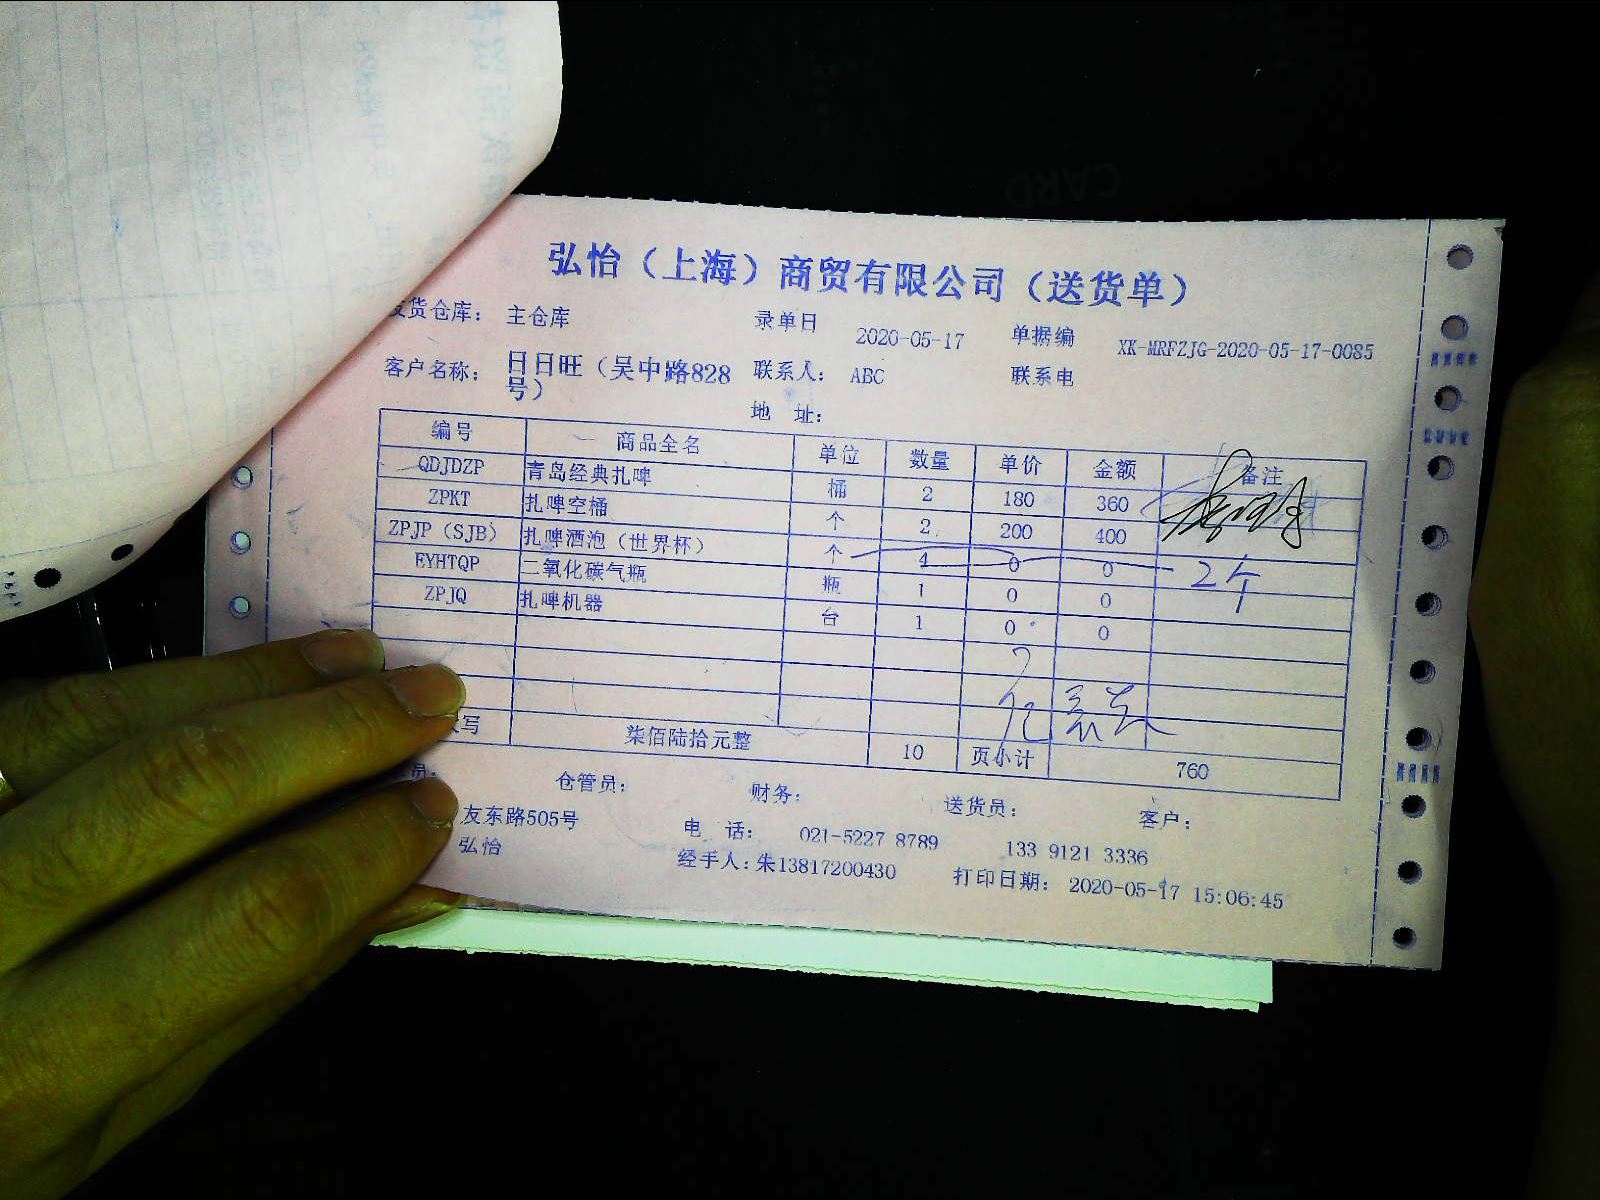 弘怡（上海）商贸有限公司（送货单）
货仓库： 主仓库 录单日 2020-05-17 单据编 XK-MRFZJG-2020-05-17-0085
客户名称： 日日旺（吴中路828号） 联系人： ABC 联系电
地 址：
编号 商品全名 单位 数量 单价 金额 备注
QDJDZP 青岛经典扎啤 桶 2 180 360
ZPKT 扎啤空桶 个 2 200 400
ZPJP（SJB） 扎啤酒泡（世界杯） 个 4 0 0 2个
EYHTQP 二氧化碳气瓶 瓶 1 0 0
ZPJQ 扎啤机器 台 1 0 0
写 柒佰陆拾元整 10 页小计 760
员： 仓管员： 财务： 送货员： 客户：
友东路505号 电 话： 021-5227 8789 133 9121 3336
弘怡 经手人：朱13817200430 打印日期： 2020-05-17 15:06:45
CARD